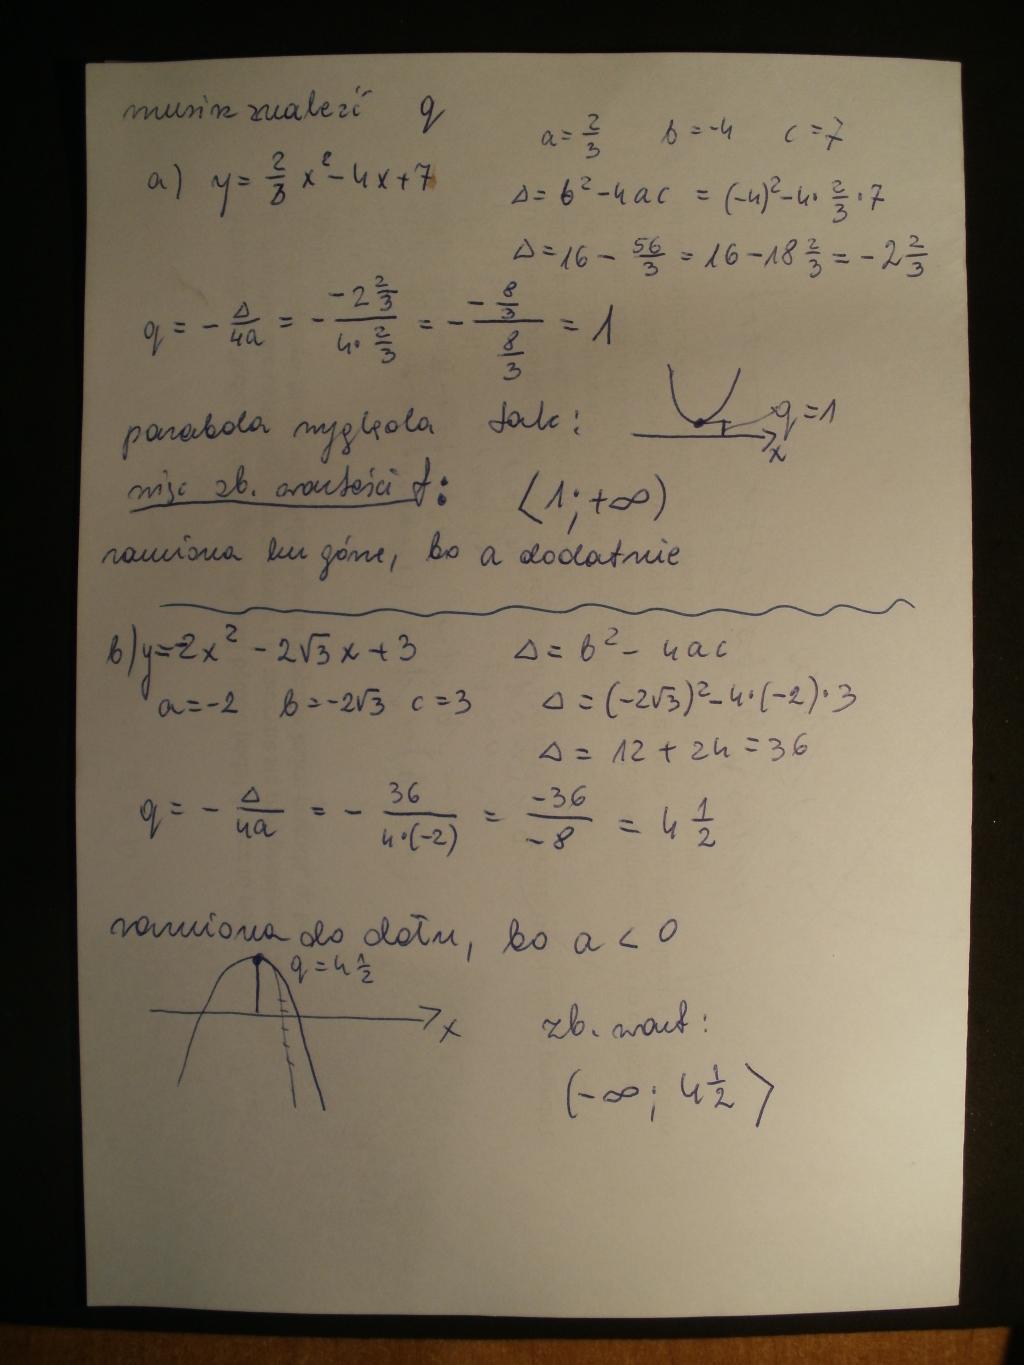 musisz znaleźć q
a) y = 2/3 x² - 4x + 7
a = 2/3 b = -4 c = 7
Δ = b² - 4ac = (-4)² - 4 · 2/3 · 7
Δ = 16 - 56/3 = 16 - 18 2/3 = -2 2/3
q = - Δ/4a = - (-2 2/3)/(4 · 2/3) = - (-8/3)/(8/3) = 1
parabola wygląda tak:
q = 1
x
więc zb. wartości f: ⟨1; +∞)
ramiona ku górze, bo a dodatnie
b) y = -2x² - 2√3 x + 3
a = -2 b = -2√3 c = 3
Δ = b² - 4ac
Δ = (-2√3)² - 4 · (-2) · 3
Δ = 12 + 24 = 36
q = - Δ/4a = - 36/(4·(-2)) = -36/-8 = 4 1/2
ramiona do dołu, bo a < 0
q = 4 1/2
x
zb. wart:
(-∞; 4 1/2⟩